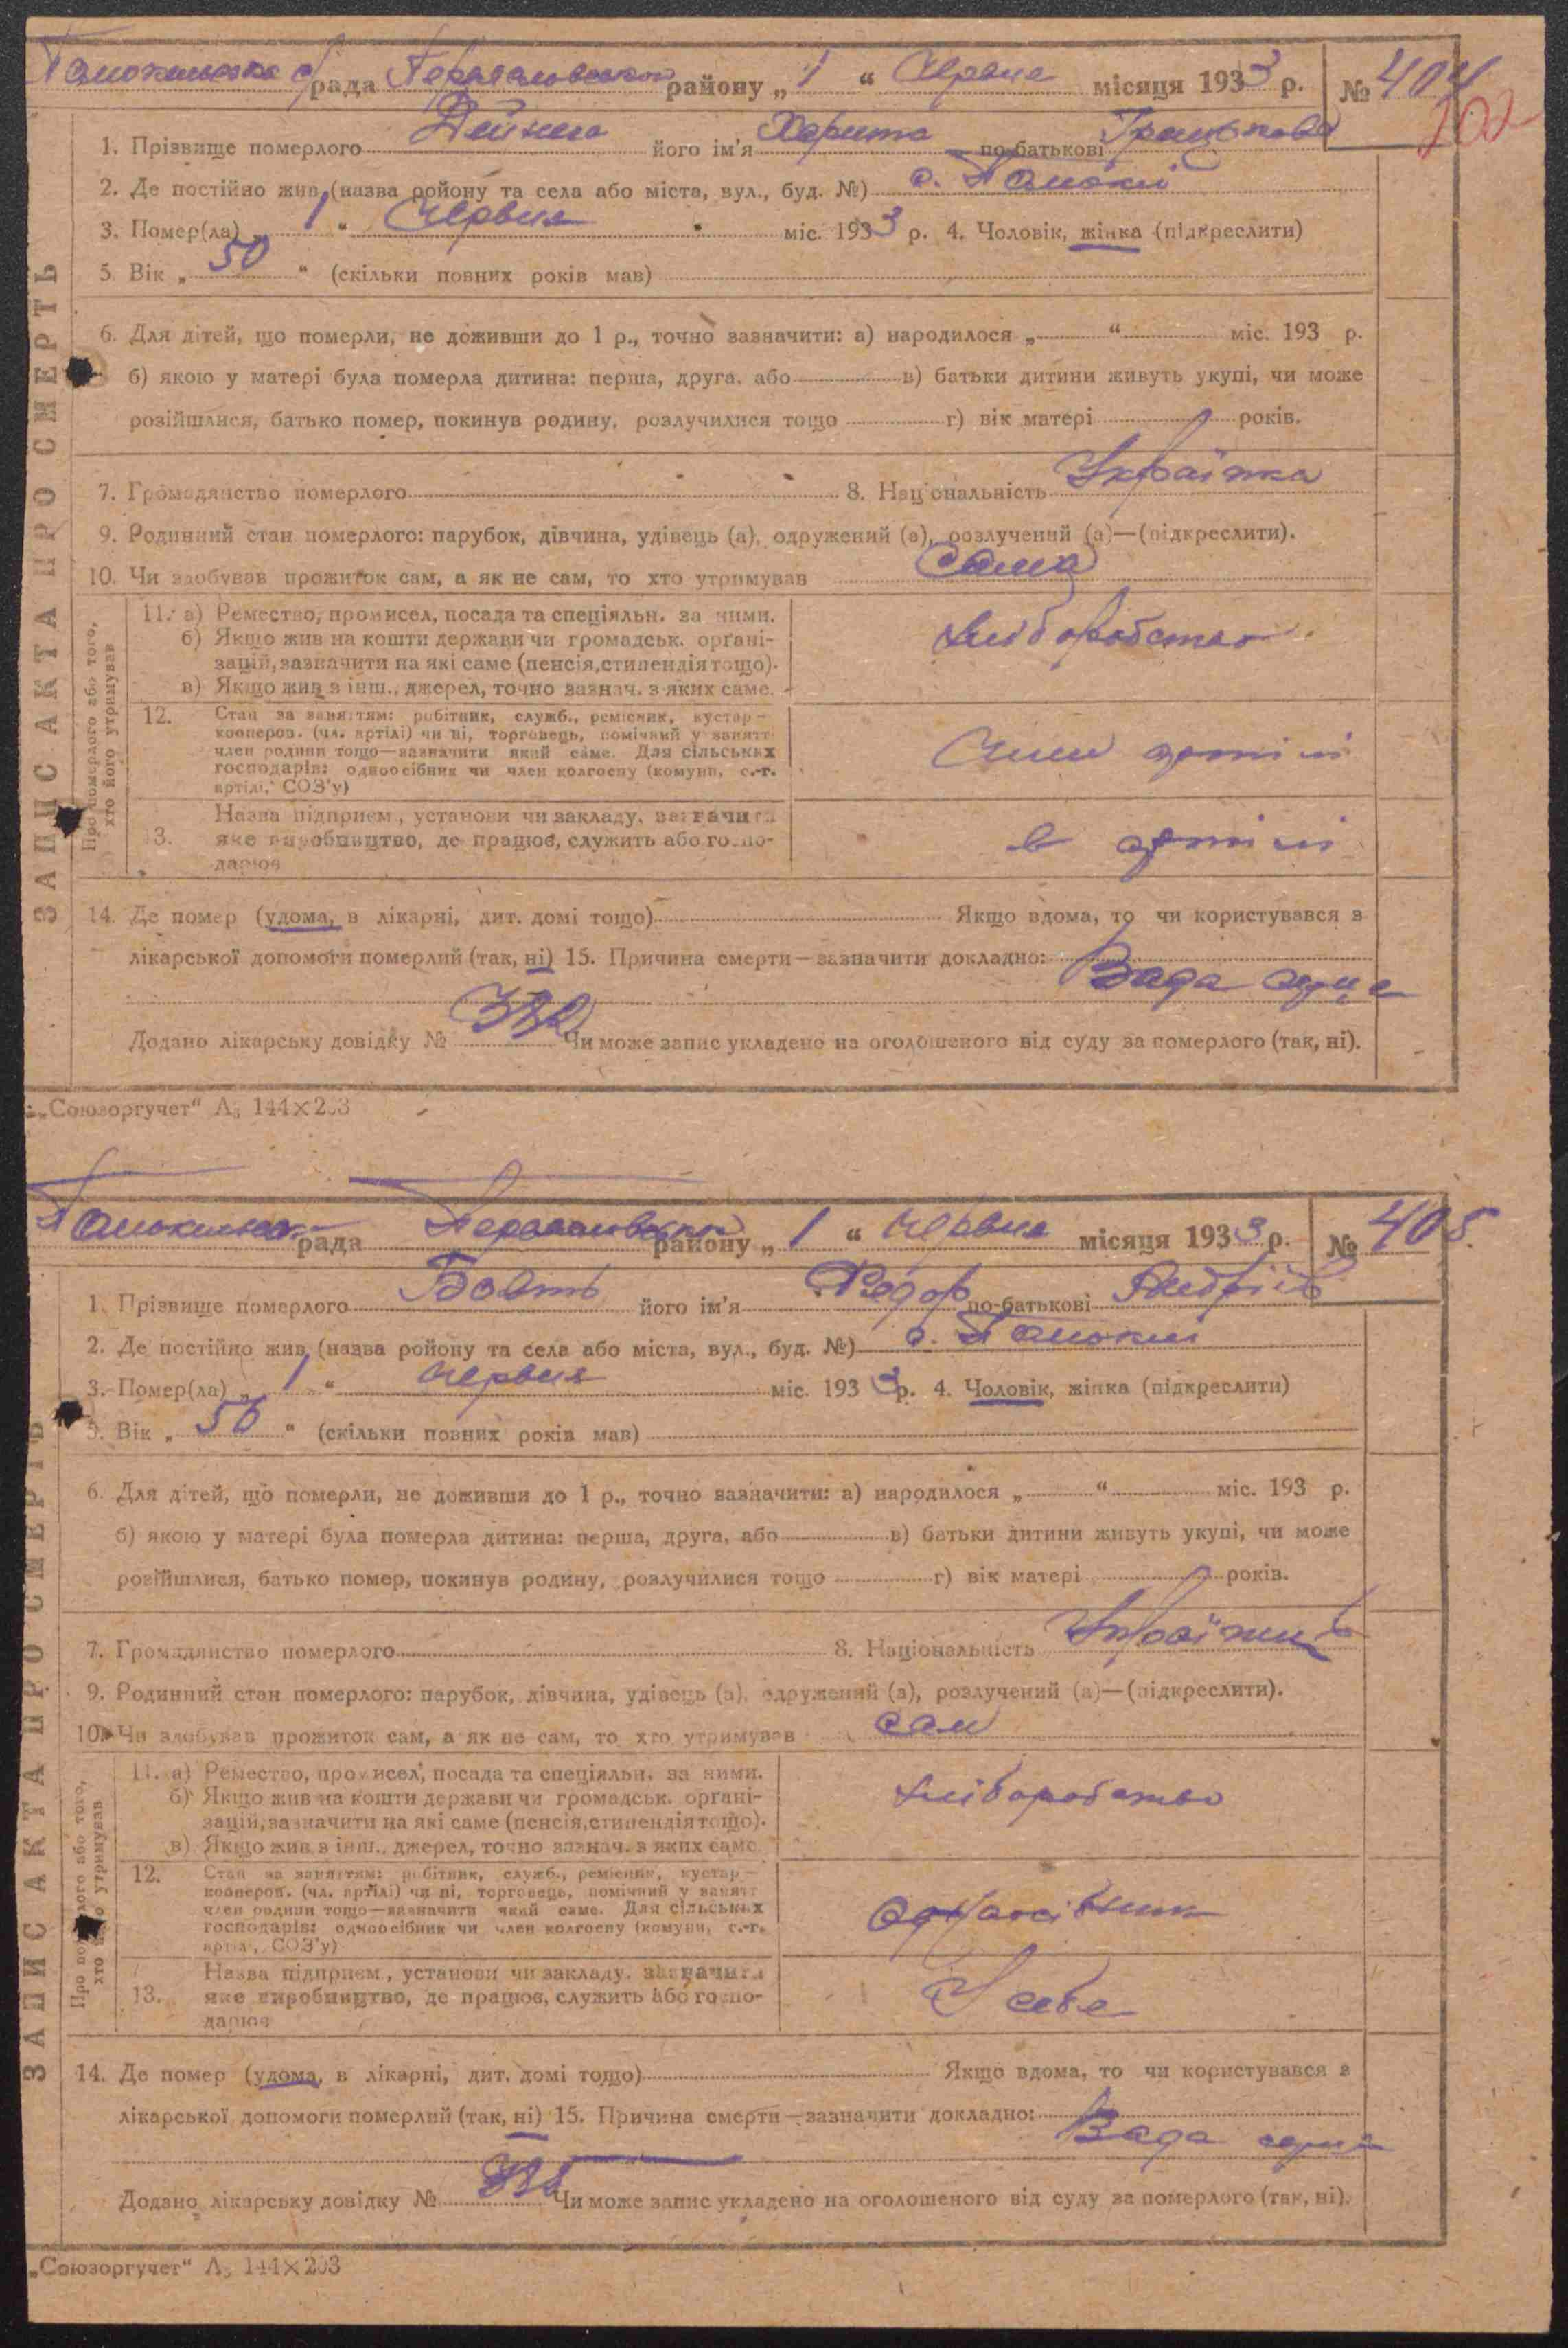 рада района „ 1 “ Червня місяця 1933 р. № 404
202
1. Прізвище померлого Дейнега його ім'я Харитя по-батькові
2. Де постійно жив (назва ройону та села або міста, вул., буд. №) с.
3. Помер(ла) „ 1 “ Червня міс. 1933 р. 4. Чоловік, жінка (підкреслити)
5. Вік „ 50 “ (скільки повних років мав)
6. Для дітей, що померли, не доживши до 1 р., точно зазначити: а) народилося „ “ міс. 193 р.
б) якою у матері була померла дитина: перша, друга, або в) батьки дитини живуть укупі, чи може
розійшлися, батько помер, покинув родину, розлучилися тощо г) вік матері років.
7. Громадянство померлого 8. Національність Українка
9. Родинний стан померлого: парубок, дівчина, удівець (а), одружений (а), розлучений (а)—(підкреслити).
10. Чи здобував прожиток сам, а як не сам, то хто утримував Сама
ЗАПИС АКТА ПРО СМЕРТЬ
Про померлого або того,
хто його утримував
11. а) Ремество, промисел, посада та спеціяльн. за ними.
б) Якщо жив на кошти держави чи громадськ. органі-
зацій, зазначити на які саме (пенсія, стипендія тощо).
в) Якщо жив з інш., джерел, точно зазнач. з яких саме.
хліборобство
12. Стан за заняттям: робітник, служб., ремісник, кустар—
коопероз. (чл. артілі) чи ні, торговець, помічний у занятт
член родини тощо—зазначити який саме. Для сільських
господарів: одноосібник чи член колгоспу (комуни, с.-г.
артілі, СОЗ'у)
Член артілі
Назва підприєм, установи чи закладу, зазначити
13. яке виробництво, де працює, служить або госпо-
дарює
в артілі
14. Де помер (удома, в лікарні, дит. домі тощо) Якщо вдома, то чи користувався з
лікарської допомоги померлий (так, ні) 15. Причина смерти—зазначити докладно:
Вада серця
Додано лікарську довідку № Чи може запис укладено на оголошеного від суду за померлого (так, ні).
„Союзоргучет“ А5 144×203
рада району „ 1 “ Червня місяця 1933 р. № 405
1. Прізвище померлого його ім'я Федор по-батькові Андріїв
2. Де постійно жив (назва ройону та села або міста, вул., буд. №) с.
3. Помер(ла) „ 1 “ Червня міс. 1933 р. 4. Чоловік, жінка (підкреслити)
5. Вік „ 56 “ (скільки повних років мав)
6. Для дітей, що померли, не доживши до 1 р., точно зазначити: а) народилося „ “ міс. 193 р.
б) якою у матері була померла дитина: перша, друга, або в) батьки дитини живуть укупі, чи може
розійшлися, батько помер, покинув родину, розлучилися тощо г) вік матері років.
7. Громадянство померлого 8. Національність Українець
9. Родинний стан померлого: парубок, дівчина, удівець (а), одружений (а), розлучений (а)—(підкреслити).
10. Чи здобував прожиток сам, а як не сам, то хто утримував сам
ЗАПИС АКТА ПРО СМЕРТЬ
Про померлого або того,
хто його утримував
11. а) Ремество, промисел, посада та спеціяльн. за ними.
б) Якщо жив на кошти держави чи громадськ. органі-
зацій, зазначити на які саме (пенсія, стипендія тощо).
в) Якщо жив з інш., джерел, точно зазнач. з яких саме
хліборобство
12. Стан за заняттям: робітник, служб., ремісник, кустар—
коопероз. (чл. артілі) чи ні, торговець, помічний у занятт
член родини тощо—зазначити який саме. Для сільських
господарів: одноосібник чи член колгоспу (комуни, с.-г.
артілі, СОЗ'у)
Одноосібник
Назва підприєм, установи чи закладу, зазначити
13. яке виробництво, де працює, служить або госпо-
дарює
У себе
14. Де помер (удома, в лікарні, дит. домі тощо) Якщо вдома, то чи користувався з
лікарської допомоги померлий (так, ні) 15. Причина смерти—зазначити докладно:
Вада серця
Додано лікарську довідку № Чи може запис укладено на оголошеного від суду за померлого (так, ні).
„Союзоргучет“ А5 144×203